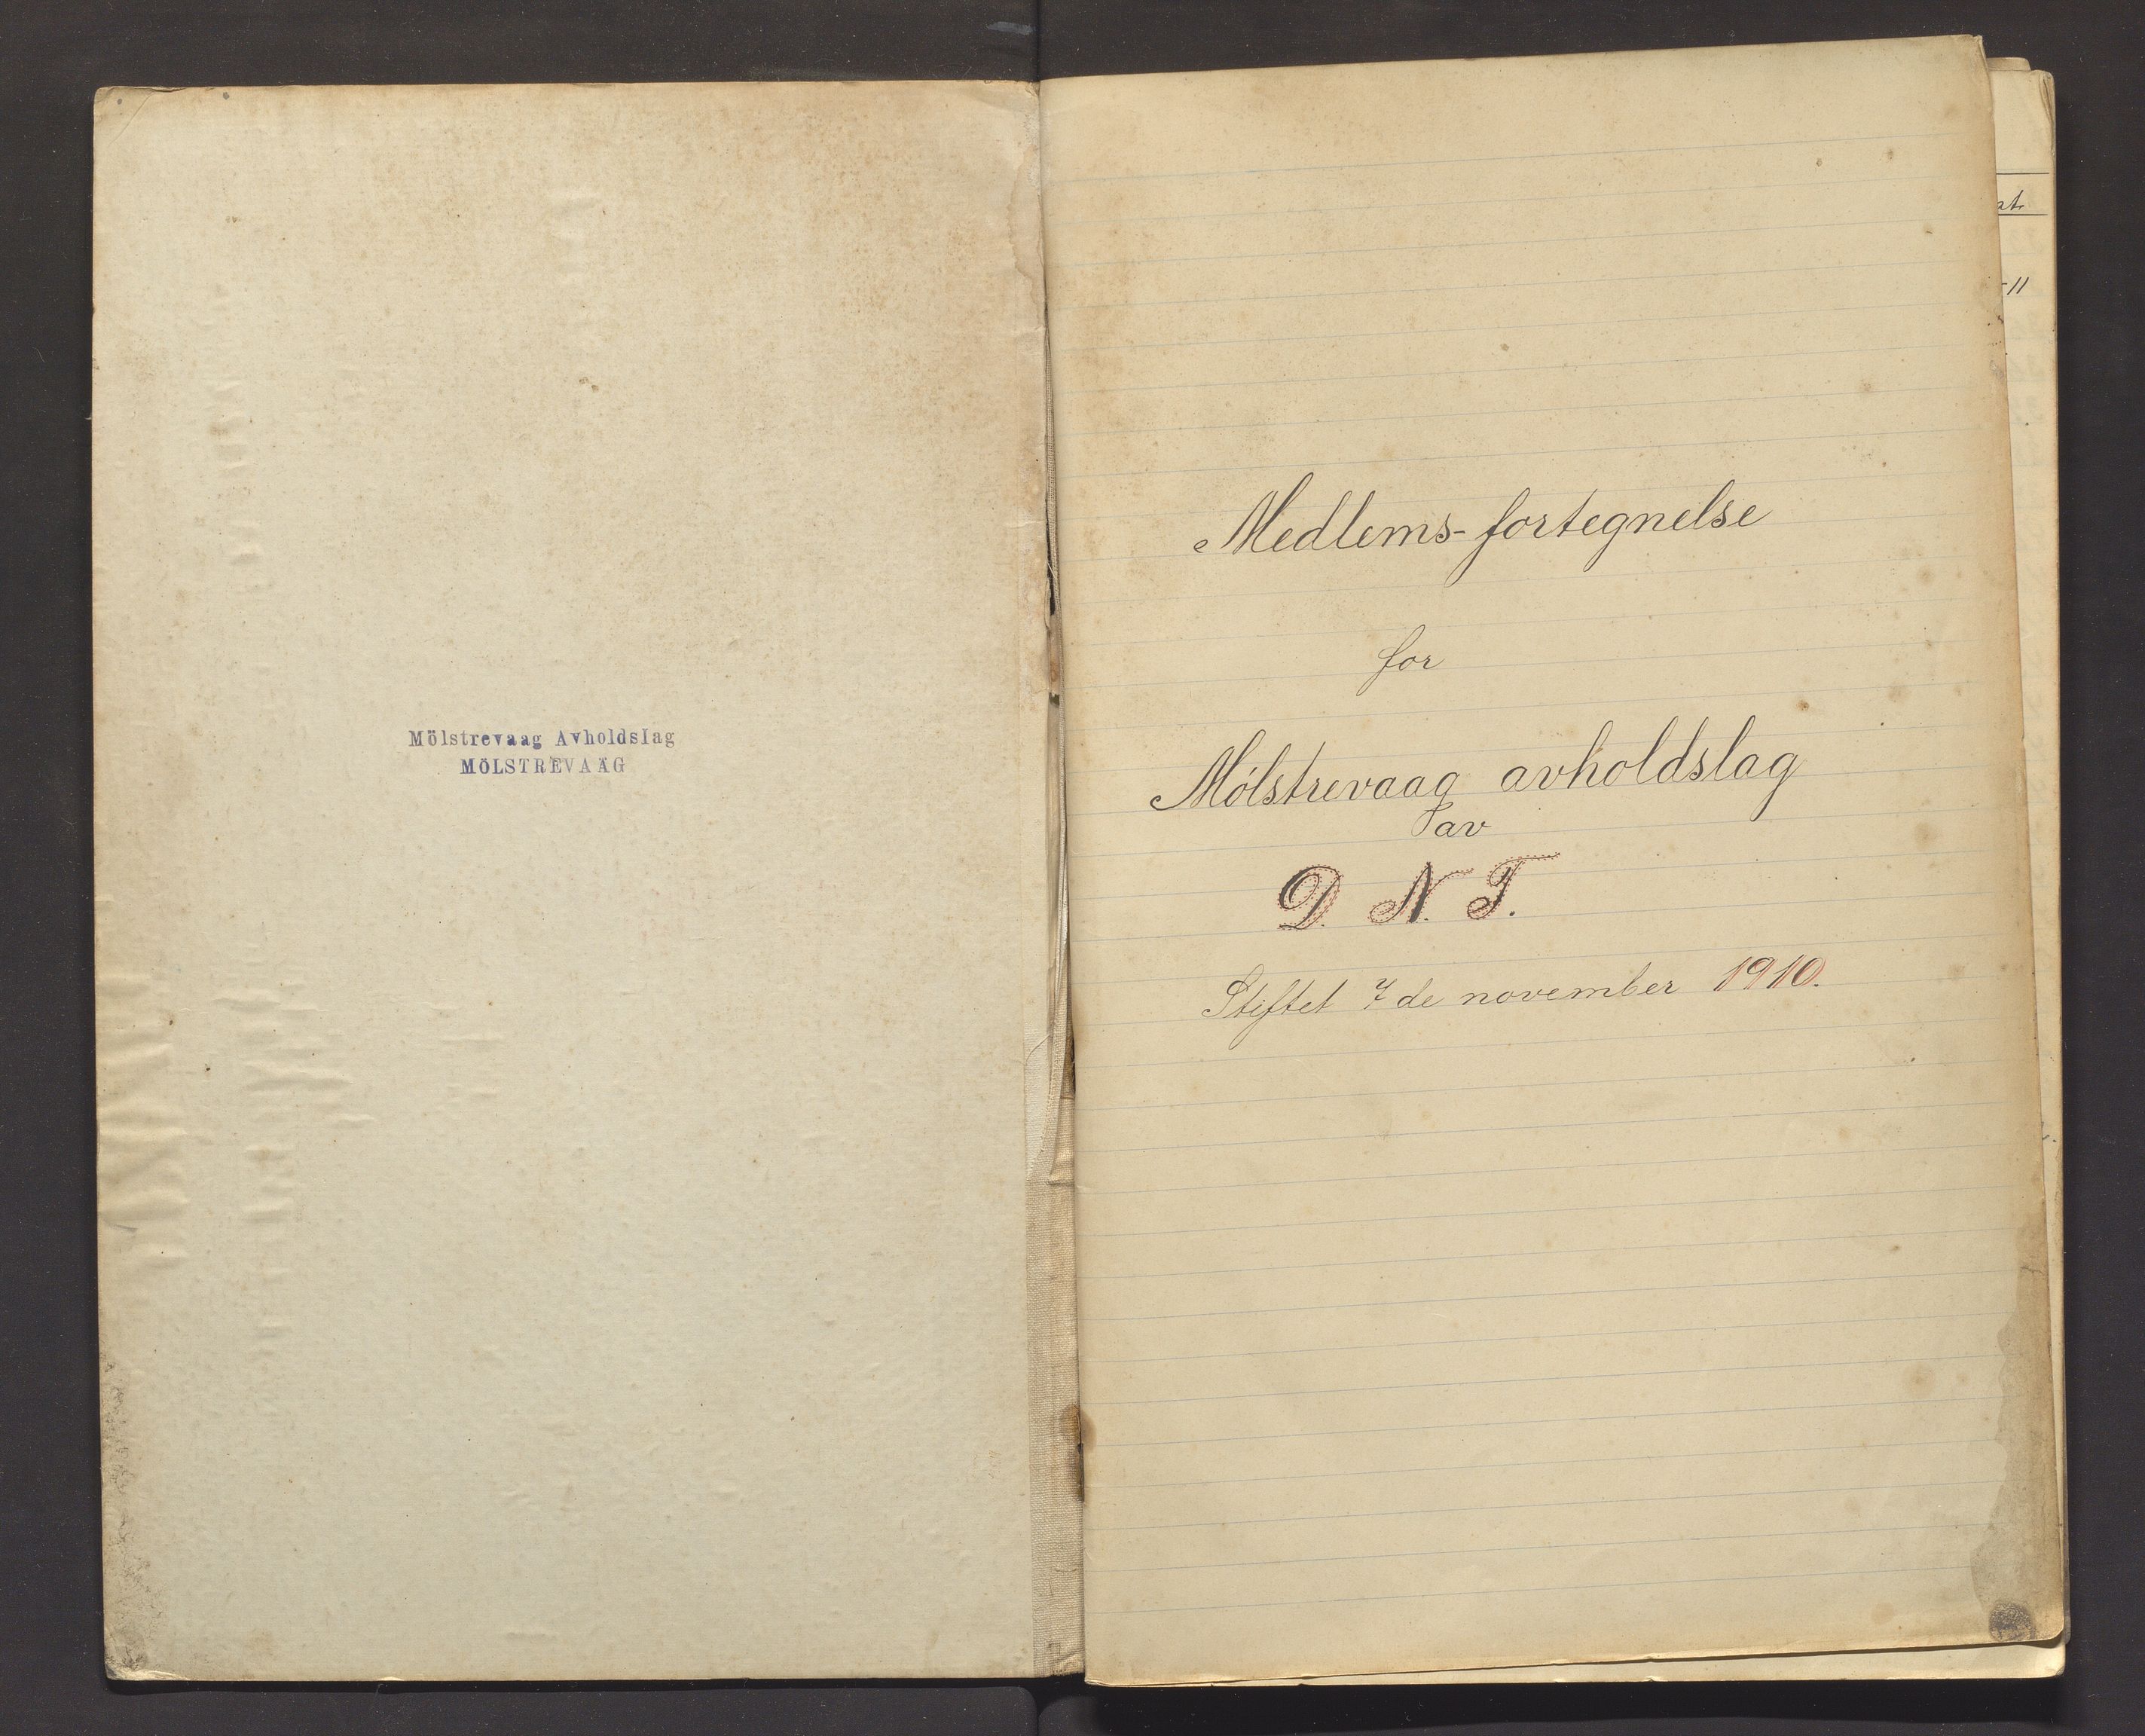 Mölstrevaag Avholdslag
MÖLSTREVAAG
Medlems-fortegnelse
for
Mólstrevaag avholdslag
av
D. N. T.
Stiftet 7 de november 1910.
-11